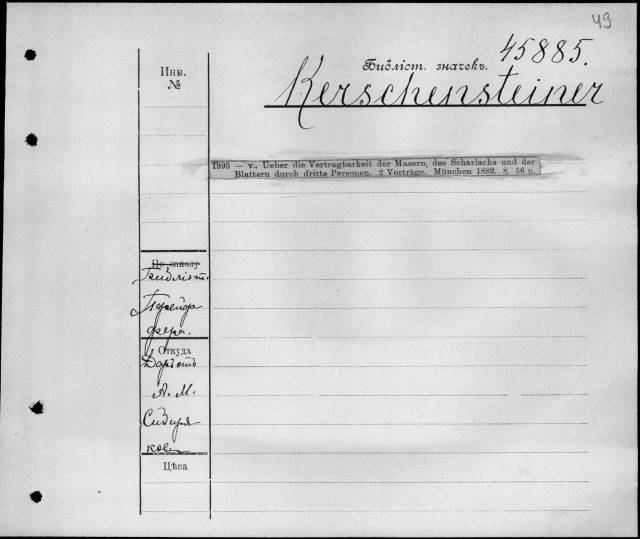 49
Инв.
№
Библіот. значекъ.
45885.
Kerschensteiner
1996 — v., Ueber die Vertragbarkeit der Masern, des Scharlachs und der
Blattern durch dritte Personen. 2 Vorträge. München 1882. 8. 56 p.
По заказу
Библіот.
Откуда
Даръ
А. М.
Сибиря
кова
Цѣна